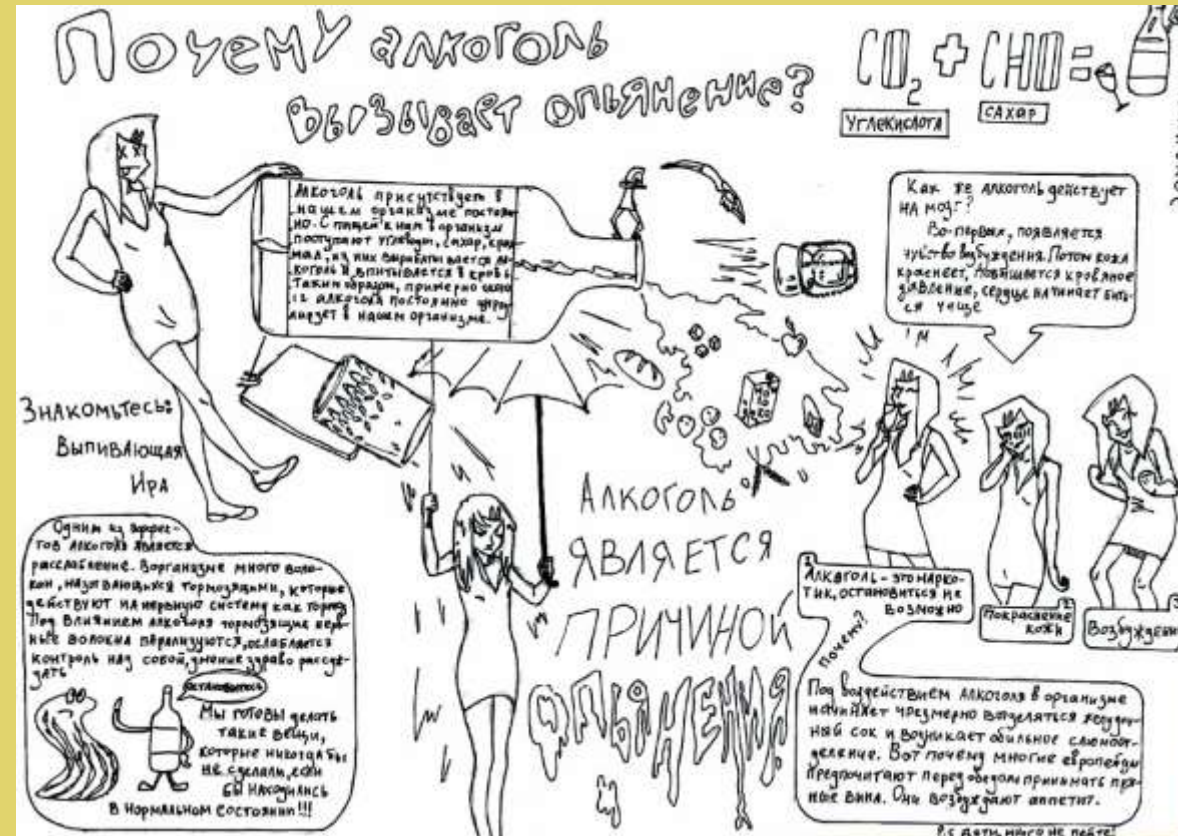 Почему алкоголь
вызывает опьянение?
CO2 + CHO =
УГЛЕКИСЛОТА
САХАР
Алкоголь присутствует в
нашем организме постоян-
но. С пищей к нам в организм
поступают углеводы, сахар, крах-
мал, из них вырабатывается ал-
коголь и впитывается в кровь
Таким образом, примерно
алкоголя постоянно цирку-
лирует в нашем организме.
Как же алкоголь действует
на мозг?
Во-первых, появляется
чувство возбуждения. Потом кожа
краснеет, повышается кровяное
давление, сердце начинает бить-
ся чаще
Знакомьтесь:
Выпивающая
Ира
Одним из эффек-
тов алкоголя является
расслабление. В организме много воло-
кон, называющихся тормозящими, которые
действуют на нервную систему как тормоз
Под влиянием алкоголя тормозящие нерв-
ные волокна парализуются, ослабляется
контроль над собой, умение здраво рассуж-
дать
остановитесь
Мы готовы делать
такие вещи,
которые никогда бы
не сделали, если
бы находились
в нормальном состоянии!!!
Алкоголь
является
причиной
опьянения
1
Алкоголь - это нарко-
тик, остановиться не
возможно
2
Покраснение
кожи
3
Возбуждение
Почему?
Под воздействием алкоголя в организме
начинает чрезмерно выделяться желудоч-
ный сок и возникает обильное слюноот-
деление. Вот почему многие европейцы
предпочитают перед обедом принимать пря-
ные вина. Они возбуждают аппетит.
P.S дети, много не пейте!